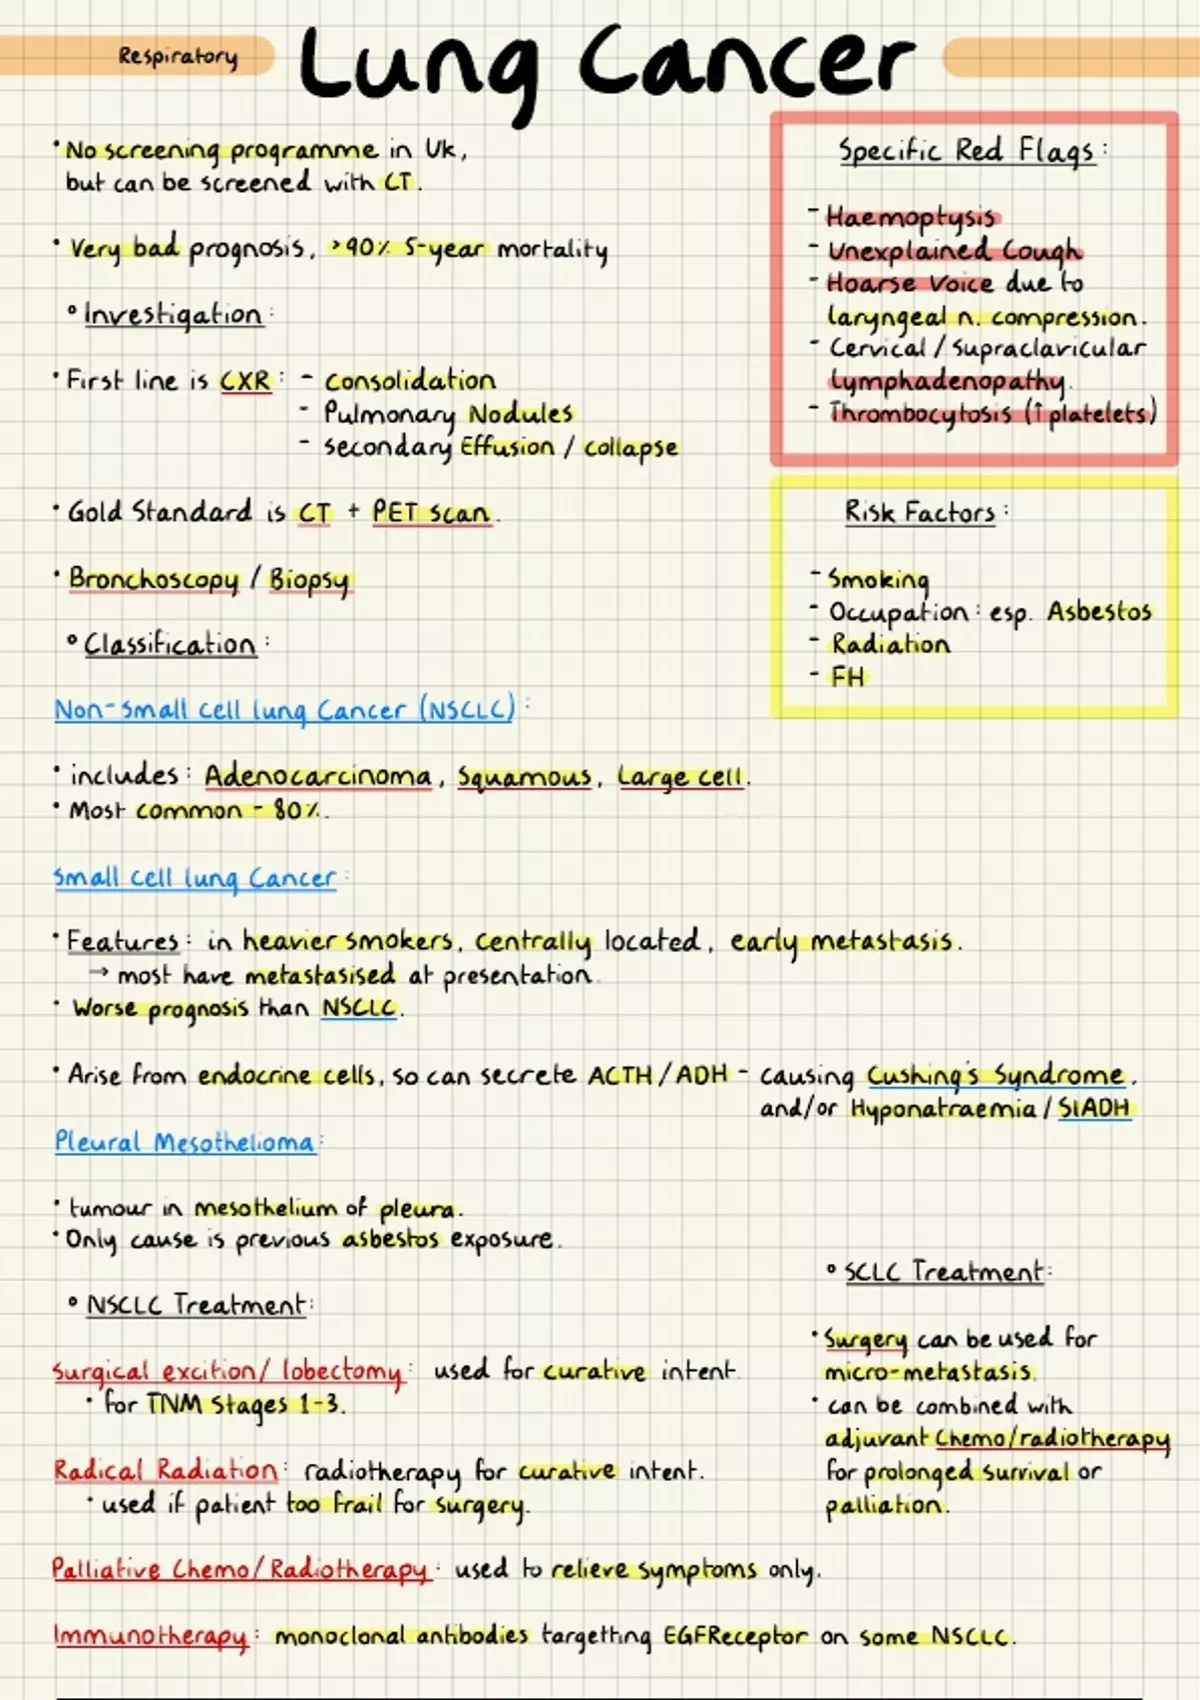 Respiratory
Lung Cancer
• No screening programme in Uk,
but can be screened with CT.
• Very bad prognosis, >90% 5-year mortality
° Investigation:
• First line is CXR: - consolidation
- Pulmonary Nodules
- secondary Effusion / collapse
• Gold Standard is CT + PET scan.
• Bronchoscopy / Biopsy
Specific Red Flags:
- Haemoptysis
- Unexplained Cough
- Hoarse Voice due to
laryngeal n. compression.
- Cervical / Supraclavicular
Lymphadenopathy.
- Thrombocytosis (↑ platelets)
Risk Factors:
- Smoking
- Occupation: esp. Asbestos
- Radiation
- FH
° Classification:
Non-small cell lung Cancer (NSCLC):
• includes: Adenocarcinoma, Squamous, Large cell.
• Most common - 80%.
Small cell lung Cancer:
• Features: in heavier smokers, centrally located, early metastasis.
→ most have metastasised at presentation.
• Worse prognosis than NSCLC.
• Arise from endocrine cells, so can secrete ACTH / ADH - causing Cushing's Syndrome.
and/or Hyponatraemia / SIADH
Pleural Mesothelioma:
• tumour in mesothelium of pleura.
• Only cause is previous asbestos exposure.
° NSCLC Treatment:
Surgical excition/ lobectomy: used for curative intent.
• for TNM Stages 1-3.
Radical Radiation: radiotherapy for curative intent.
• used if patient too frail for surgery.
Palliative Chemo/Radiotherapy: used to relieve symptoms only.
Immunotherapy: monoclonal antibodies targetting EGFReceptor on some NSCLC.
° SCLC Treatment:
• Surgery can be used for
micro-metastasis.
• can be combined with
adjuvant Chemo/radiotherapy
for prolonged survival or
palliation.